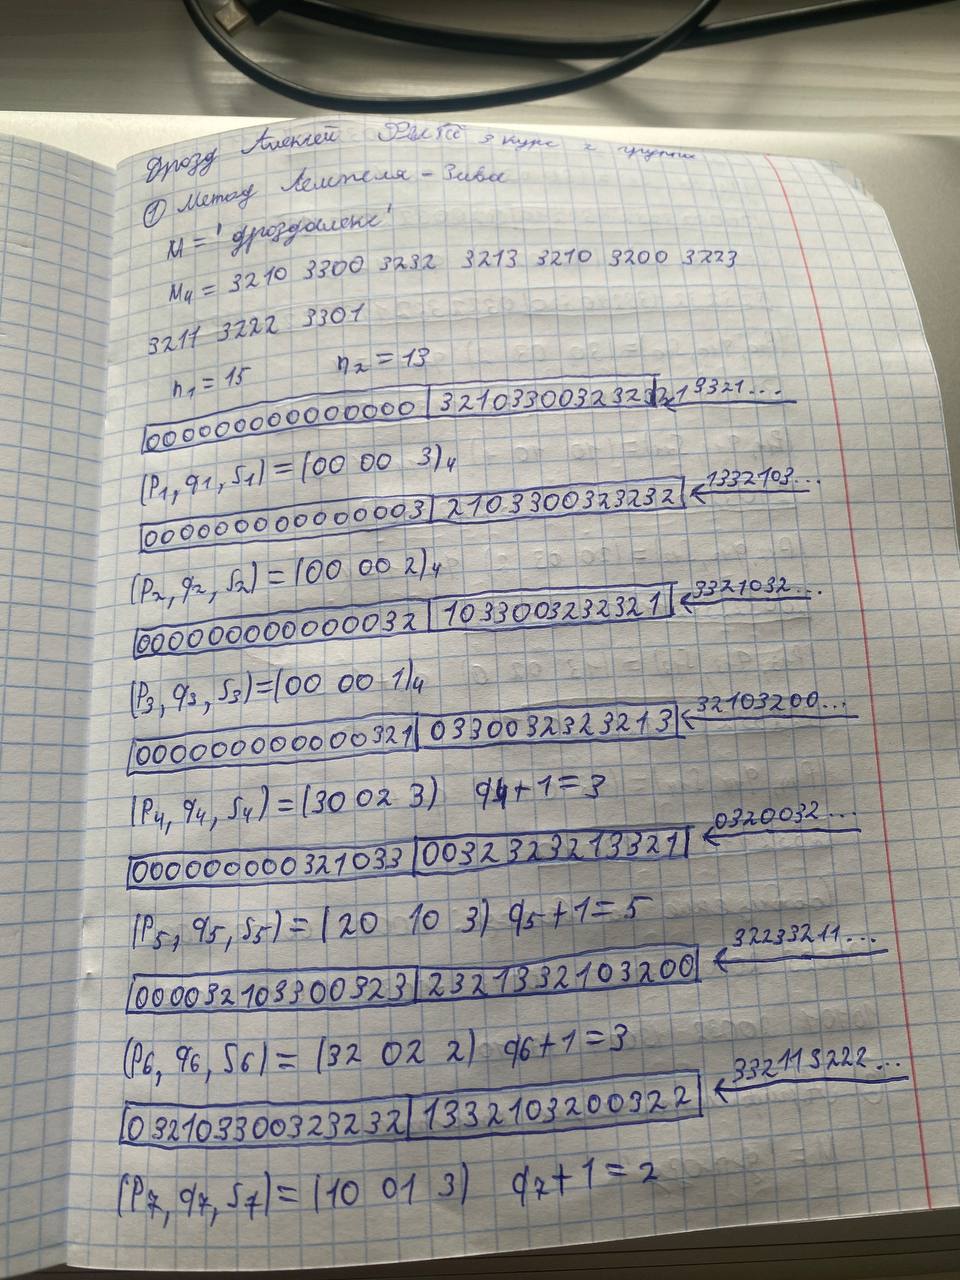 Дрозд Алексей 3 курс 2 группа
① Метод Лемпеля - Зива
М = 'дроздалекс'
М₄ = 3210 3300 3232 3213 3210 3200 3223
3211 3222 3301
n₁ = 15 n₂ = 13
000000000000000 3210330032323213321...
(P₁, q₁, S₁) = (00 00 3)₄
000000000000003 2103300323232 1332103...
(P₂, q₂, S₂) = (00 00 2)₄
000000000000032 1033003232321 3321032...
(P₃, q₃, S₃) = (00 00 1)₄
000000000000321 0330032323213 32103200...
(P₄, q₄, S₄) = (30 02 3) q₄+1 = 3
000000000321033 0032323213321 0320032...
(P₅, q₅, S₅) = (20 10 3) q₅+1 = 5
000032103300323 2321332103200 32233211...
(P₆, q₆, S₆) = (32 02 2) q₆+1 = 3
032103300323232 1332103200322 332113222...
(P₇, q₇, S₇) = (10 01 3) q₇+1 = 2